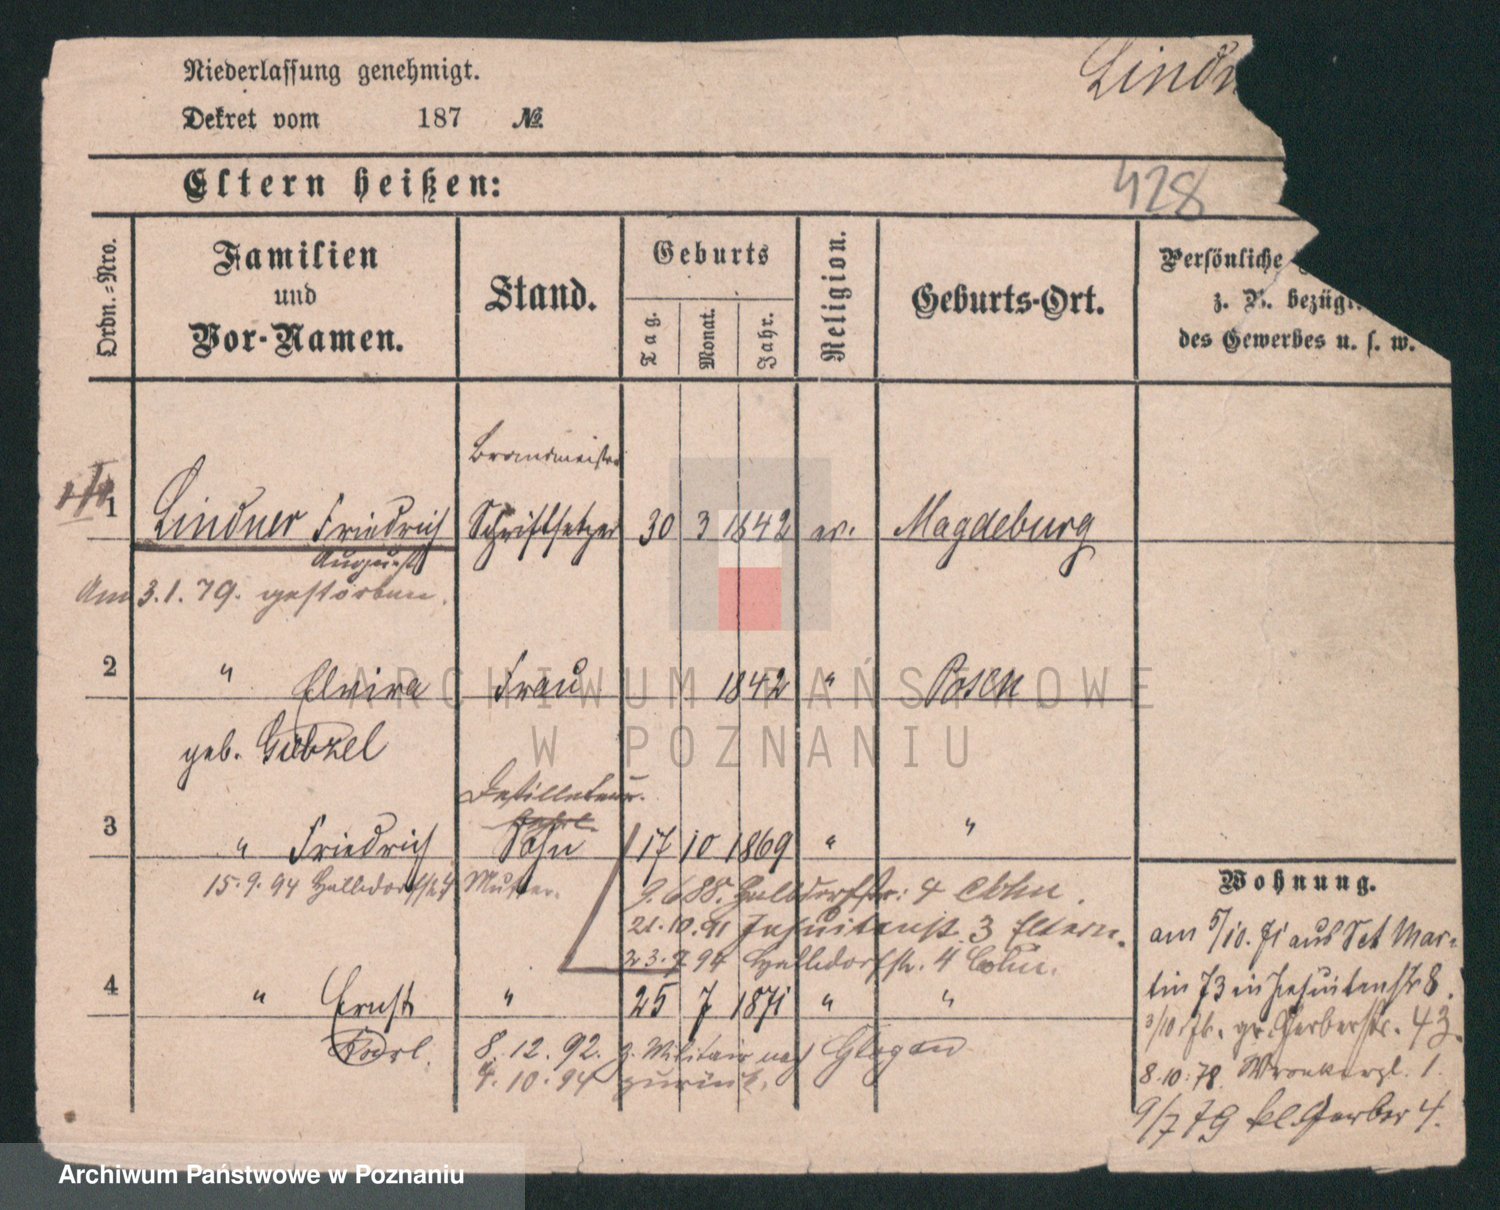 Niederlassung genehmigt.
Lindn
Dekret vom 187 №.
Eltern heißen:
428
Ordn.-Nro.
Familien
und
Vor-Namen.
Stand.
Geburts
Tag.
Monat.
Jahr.
Religion.
Geburts-Ort.
Persönliche
z. B. bezügl.
des Gewerbes u. s. w.
Brandmeister
1 Lindner Friedrich Schriftsetzer 30 3 1842 ev. Magdeburg
August
Am 3.1.79. gestorben.
2 " Elvira Frau 1842 " Posen
geb.
Destillateur.
3 " Friedrich Sohn 17 10 1869 " "
15.9.94 Halldorfstr. 4 Mutter.
9.6.88. Halldorfstr. 4
21.10.91 Jesuitenstr. 3 Eltern.
23.7.94 Halldorfstr. 4
4 " Ernst " 25 7 1871 " "
Karl.
8.12.92. z. Militair nach Glogau
4.10.94 zurück.
Wohnung.
am 5/10. 71 aus Set Mar-
tin 73 in Jesuitenstr 8.
3/10 76. gr. Gerberstr. 43.
8.10.78. Wronkerpl. 1.
9/7 79 kl. Gerber 4.
ARCHIWUM PAŃSTWOWE
W POZNANIU
Archiwum Państwowe w Poznaniu